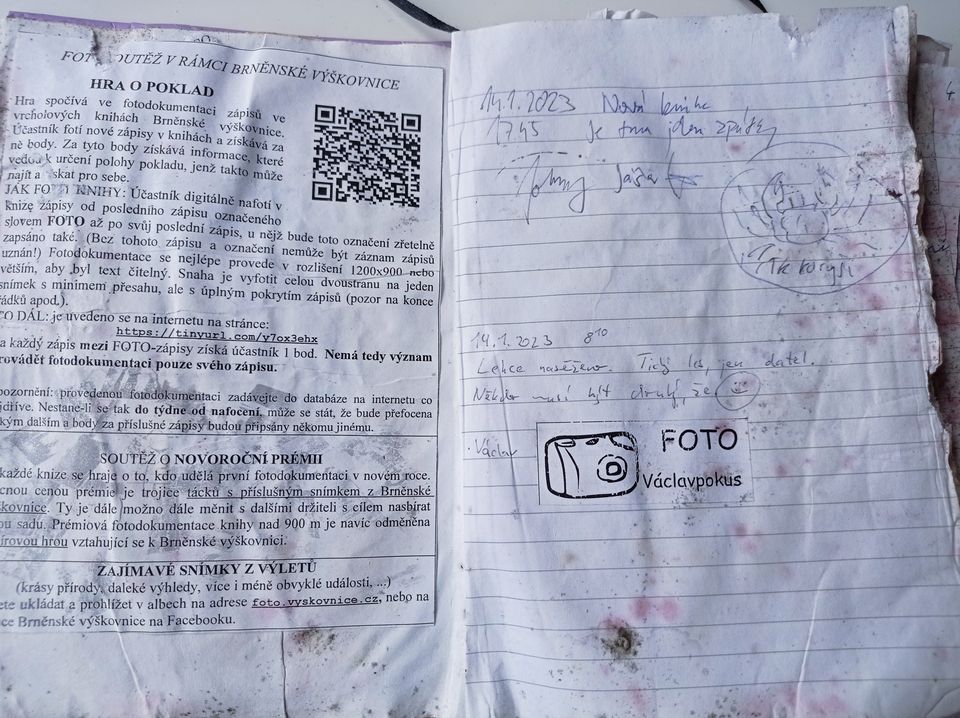 FOTOSOUTĚŽ V RÁMCI BRNĚNSKÉ VÝŠKOVNICE
HRA O POKLAD
Hra spočívá ve fotodokumentaci zápisů ve
vrcholových knihách Brněnské výškovnice.
Účastník fotí nové zápisy v knihách a získává za
ně body. Za tyto body získává informace, které
vedou k určení polohy pokladu, jenž takto může
najít a skat pro sebe.
JAK FOTI KNIHY: Účastník digitálně nafotí v
knize zápisy od posledního zápisu označeného
slovem FOTO až po svůj poslední zápis, u nějž bude toto označení zřetelně
zapsáno také. (Bez tohoto zápisu a označení nemůže být záznam zápisů
uznán!) Fotodokumentace se nejlépe provede v rozlišení 1200x900 nebo
větším, aby byl text čitelný. Snaha je vyfotit celou dvoustranu na jeden
snímek s minimem přesahu, ale s úplným pokrytím zápisů (pozor na konce
řádků apod.).
CO DÁL: je uvedeno se na internetu na stránce:
https://tinyurl.com/y7ox3ehx
a každý zápis mezi FOTO-zápisy získá účastník 1 bod. Nemá tedy význam
rovádět fotodokumentaci pouze svého zápisu.
pozornění: provedenou fotodokumentaci zadávejte do databáze na internetu co
jdříve. Nestane-li se tak do týdne od nafocení, může se stát, že bude přefocena
kým dalším a body za příslušné zápisy budou připsány někomu jinému.
SOUTĚŽ O NOVOROČNÍ PRÉMII
každé knize se hraje o to, kdo udělá první fotodokumentaci v novém roce.
cnou cenou prémie je trojice tácků s příslušným snímkem z Brněnské
škovnice. Ty je dále možno dále měnit s dalšími držiteli s cílem nasbírat
ou sadu. Prémiová fotodokumentace knihy nad 900 m je navíc odměněna
írovou hrou vztahující se k Brněnské výškovnici.
ZAJÍMAVÉ SNÍMKY Z VÝLETŮ
(krásy přírody, daleké výhledy, více i méně obvyklé události, ...)
ete ukládat a prohlížet v albech na adrese foto.vyskovnice.cz, nebo na
ce Brněnské výškovnice na Facebooku.
14.1.2023 Nová kniha
1745 Je tma jden
14.1.2023 8¹⁰
Lehce nasněženo. Tichý les, jen datel.
Někdo musí být druhý, že
Václav
FOTO
Václavpokus